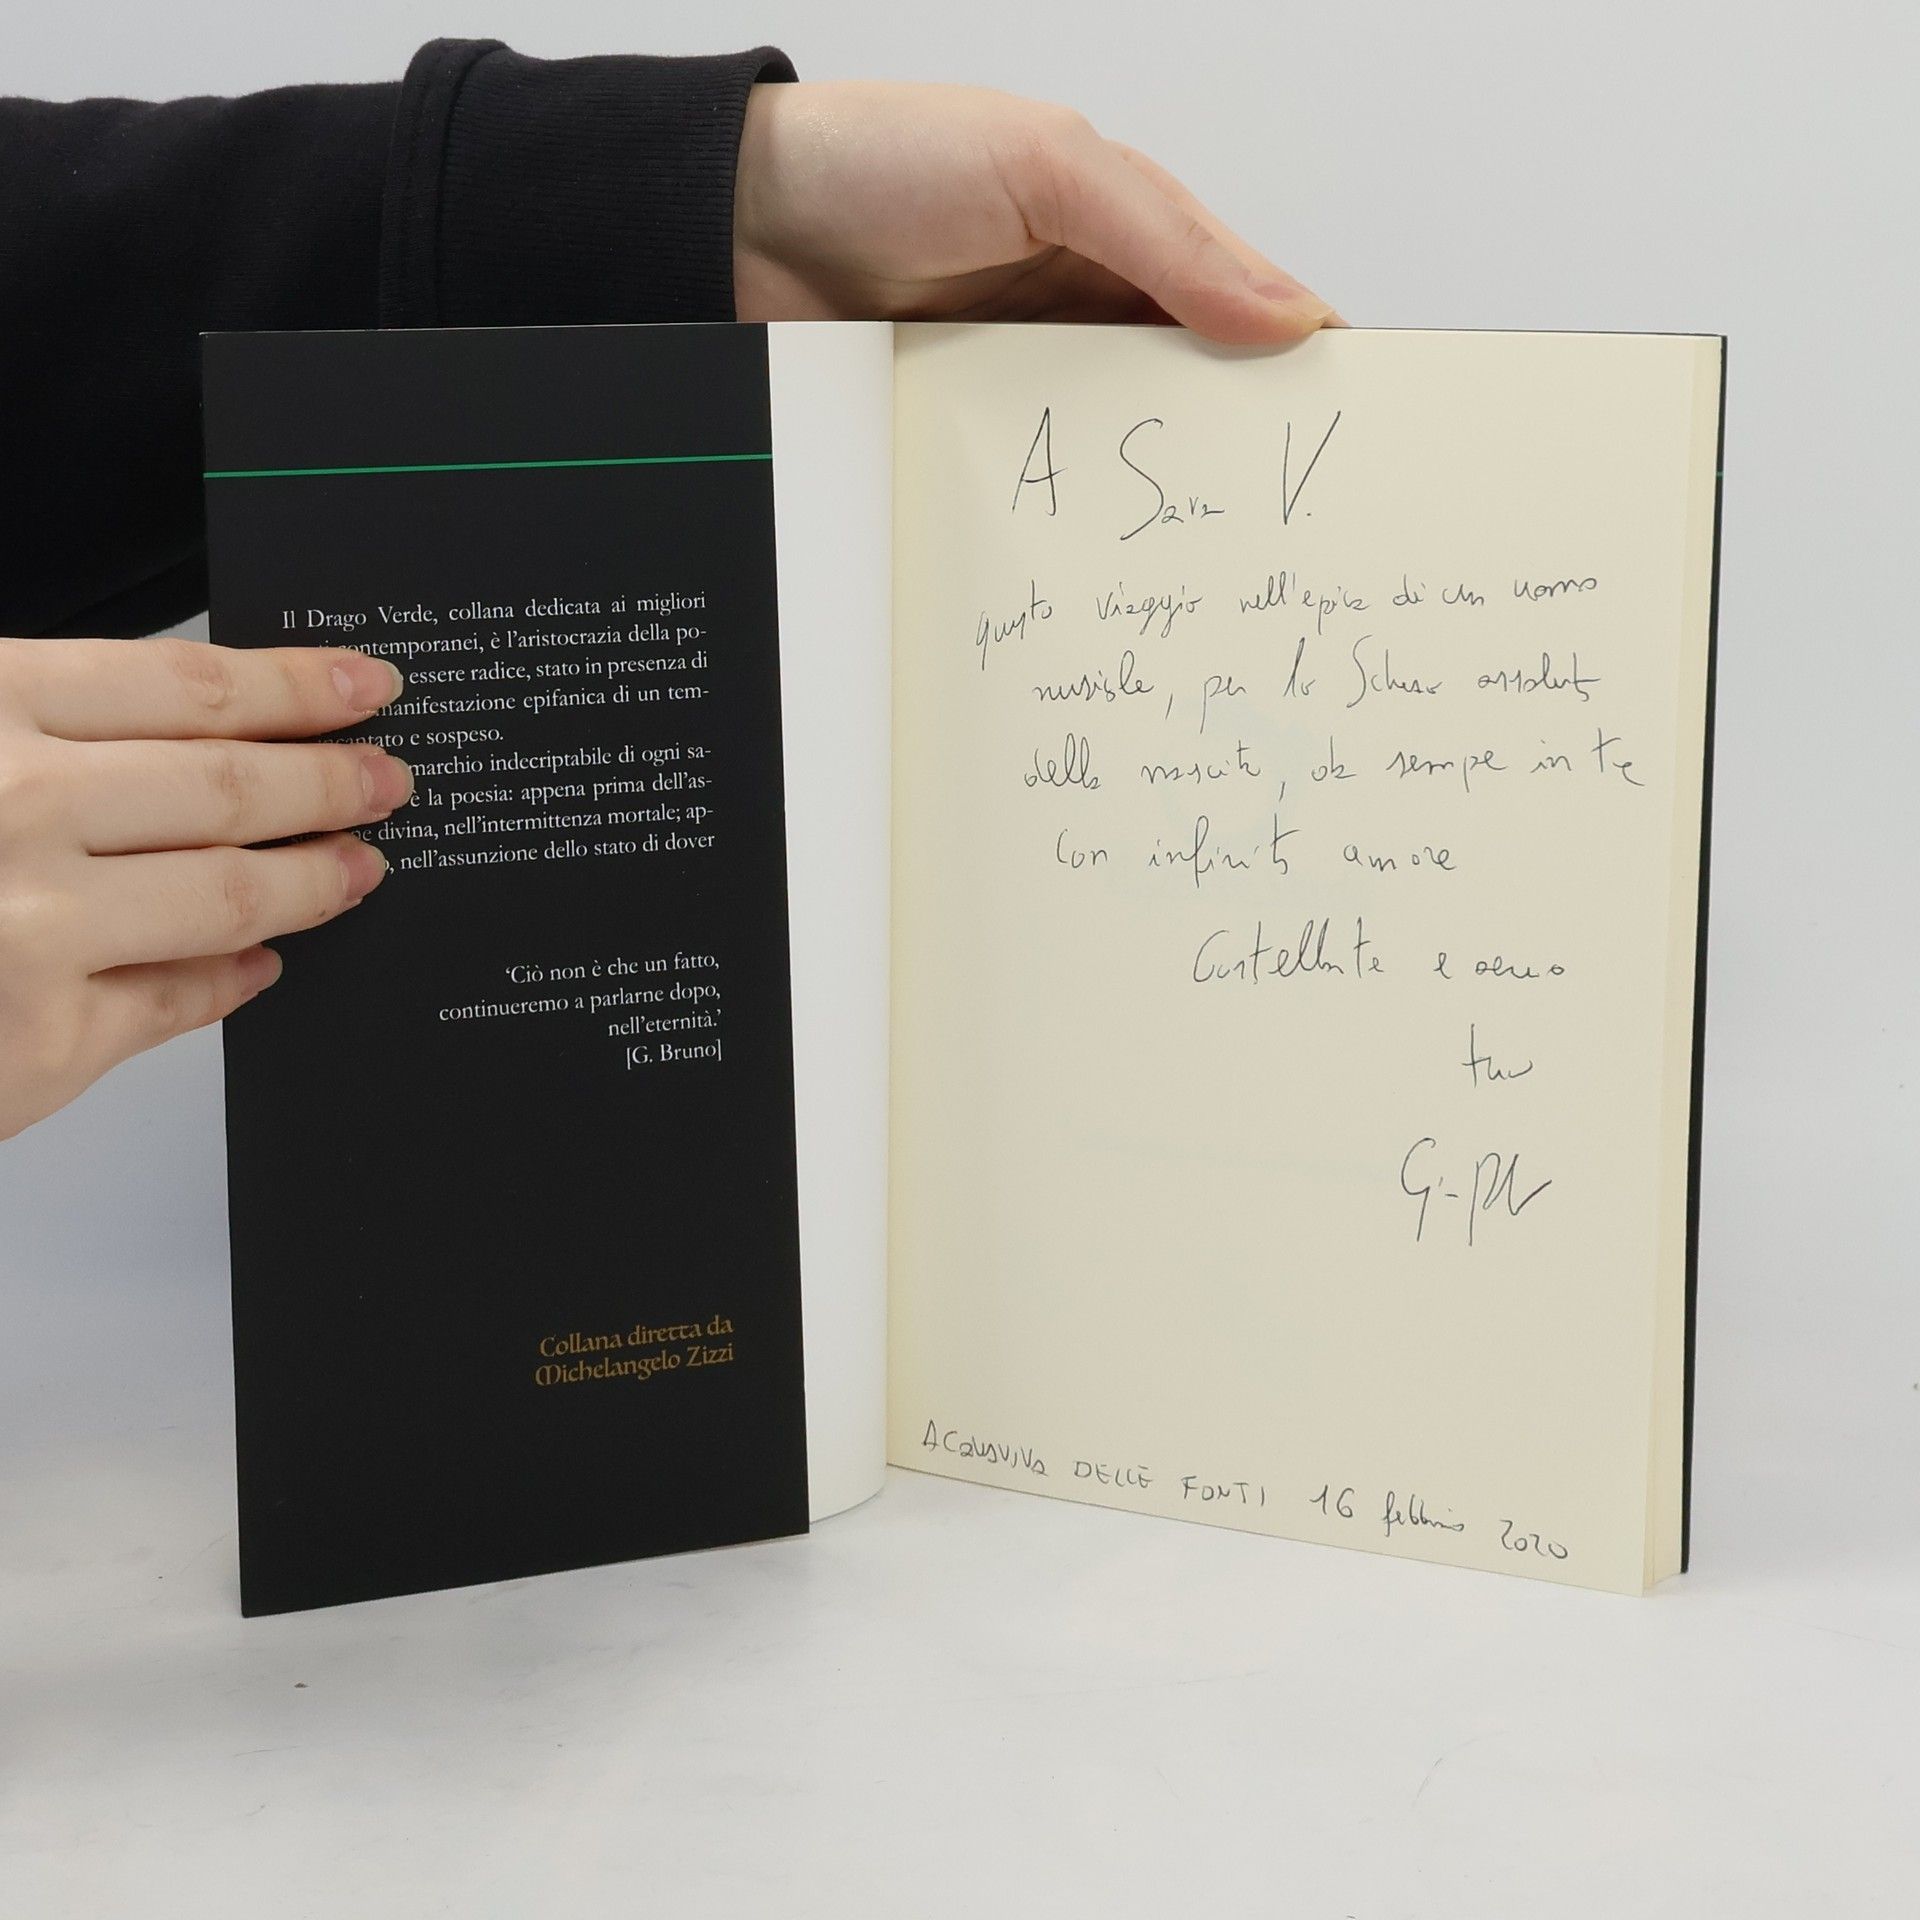 Il Drago Verde, collana dedicata ai migliori
contemporanei, è l'aristocrazia della po-
essere radice, stato in presenza di
manifestazione epifanica di un tem-
e sospeso.
marchio indecriptabile di ogni sa-
è la poesia: appena prima dell'as-
divina, nell'intermittenza mortale; ap-
nell'assunzione dello stato di dover
'Ciò non è che un fatto,
continueremo a parlarne dopo,
nell'eternità.'
[G. Bruno]
Collana diretta da
Michelangelo Zizzi
A Sara V.
questo viaggio nell'epica di un uomo
per lo Scherzo assoluto
della nascita, da sempre in te
con infinito amore
e
tuo
ACQUAVIVA DELLE FONTI 16 febbraio 2020